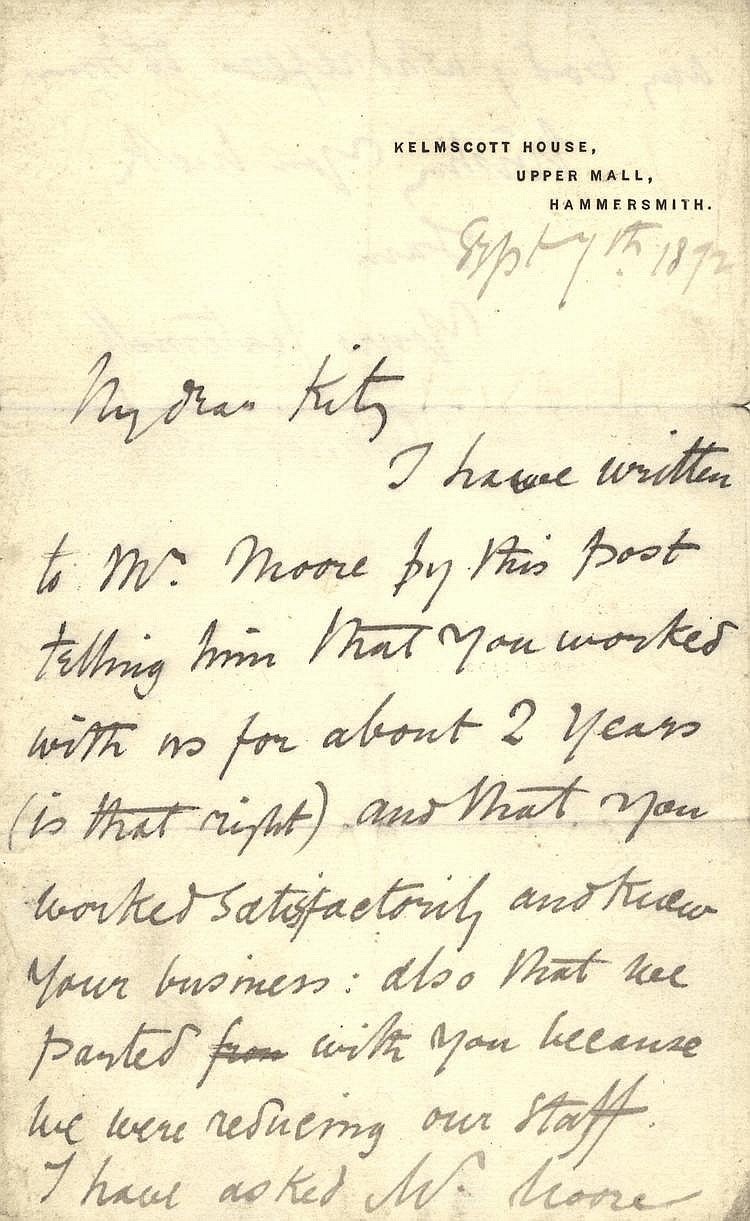 KELMSCOTT HOUSE,
UPPER MALL,
HAMMERSMITH.
Sept 7th 1892
My dear Kitz
I have written
to Mr. Moore by this post
telling him that you worked
with us for about 2 years
(is that right) and that you
worked satisfactorily and knew
your business: also that we
parted from with you because
we were reducing our staff.
I have asked Mr. Moore